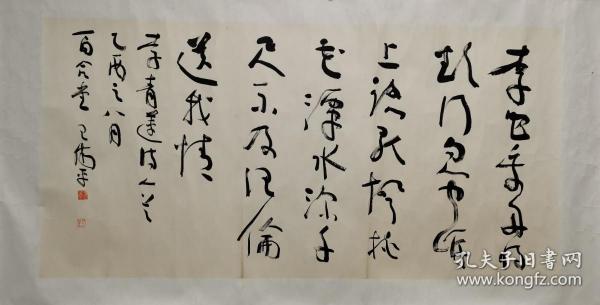 李白乘舟将
欲行忽闻岸
上踏歌声桃
花潭水深千
尺不及汪伦
送我情
李青莲诗一首
乙酉之八月
百合堂 王伟平
孔夫子旧书网
www.kongfz.com